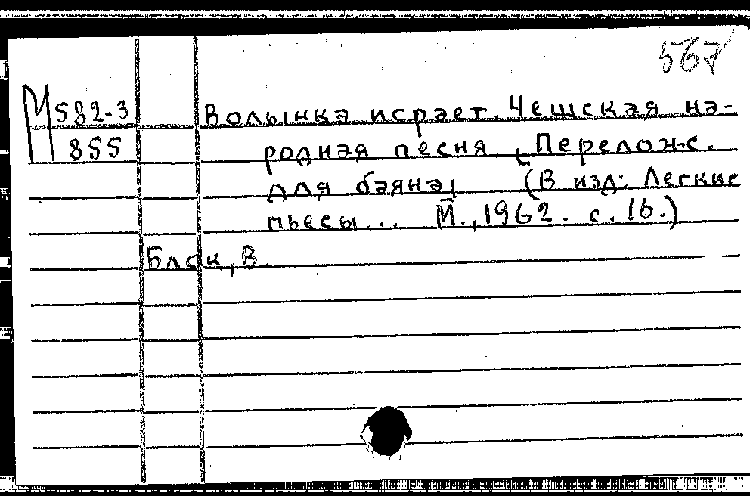 567
М 582-3 Волынка играет. Чешская на-
855 родная песня [Перелож.
для баяна] (В изд: Легкие
пьесы... М., 1962. с. 16.)
Блок, В.